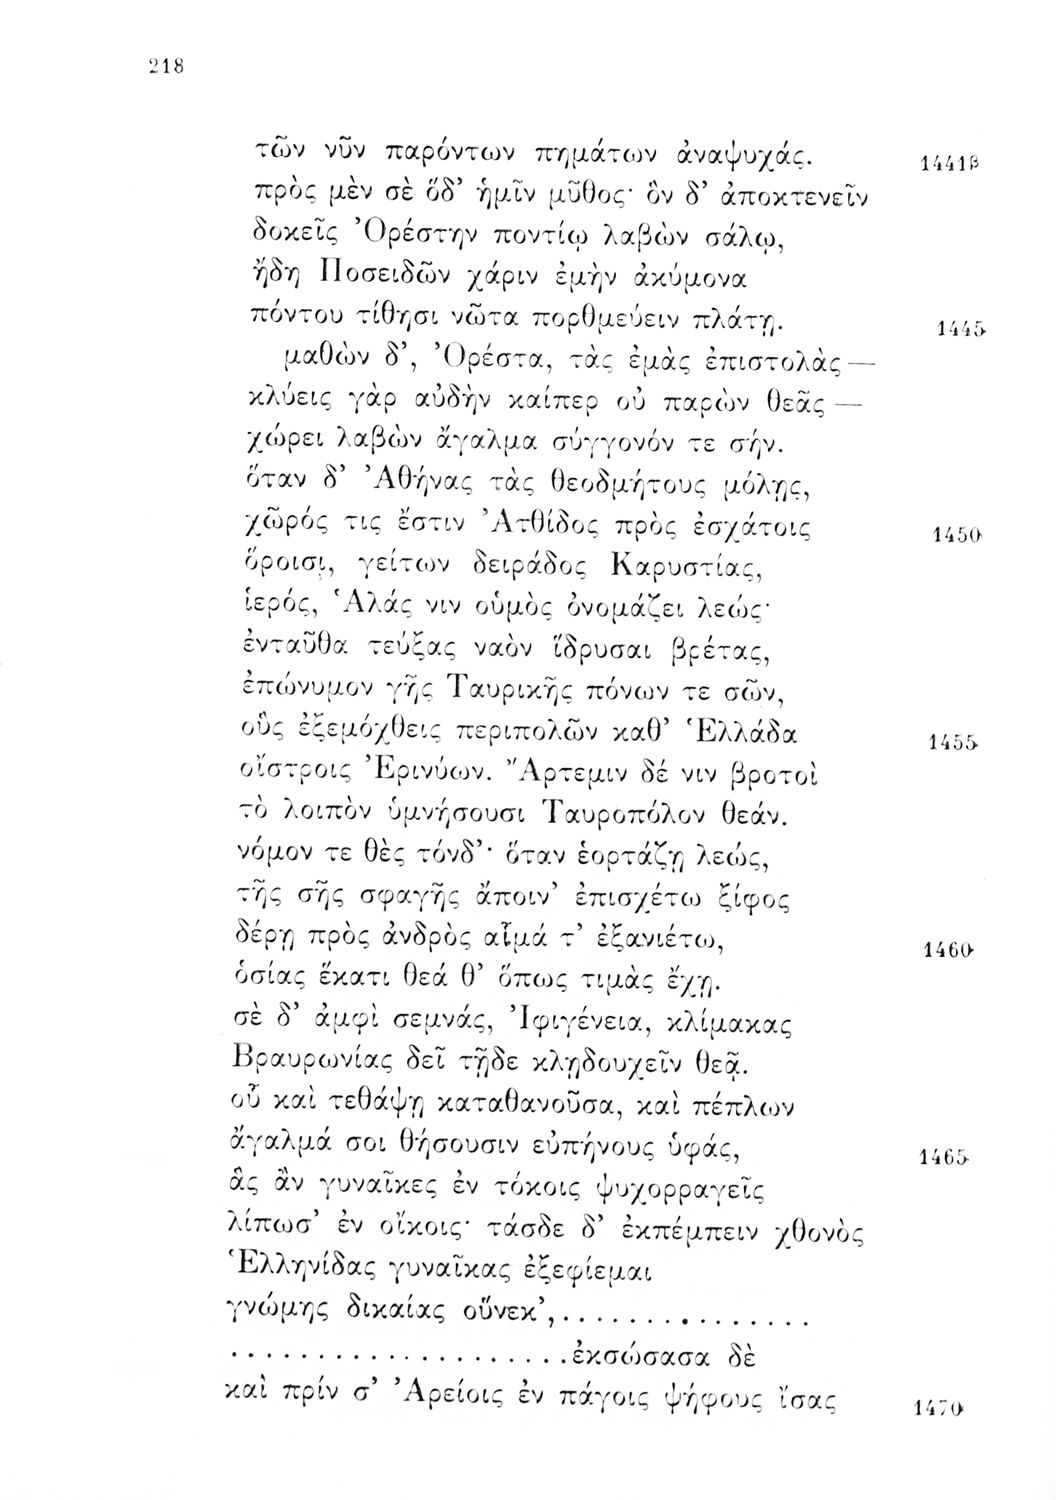 218
τῶν νῦν παρόντων πημάτων ἀναψυχάς. 1441β
πρὸς μὲν σὲ ὅδ’ ἡμῖν μῦθος· ὃν δ’ ἀποκτενεῖν
δοκεῖς Ὀρέστην ποντίῳ λαβὼν σάλῳ,
ἤδη Ποσειδῶν χάριν ἐμὴν ἀκύμονα
πόντου τίθησι νῶτα πορθμεύειν πλάτῃ. 1445
μαθὼν δ’, Ὀρέστα, τὰς ἐμὰς ἐπιστολὰς —
κλύεις γὰρ αὐδὴν καίπερ οὐ παρὼν θεᾶς —
χώρει λαβὼν ἄγαλμα σύγγονόν τε σήν.
ὅταν δ’ Ἀθήνας τὰς θεοδμήτους μόλῃς,
χῶρός τις ἔστιν Ἀτθίδος πρὸς ἐσχάτοις 1450
ὅροισι, γείτων δειράδος Καρυστίας,
ἱερός, Ἁλάς νιν οὑμὸς ὀνομάζει λεώς·
ἐνταῦθα τεύξας ναὸν ἵδρυσαι βρέτας,
ἐπώνυμον γῆς Ταυρικῆς πόνων τε σῶν,
οὓς ἐξεμόχθεις περιπολῶν καθ’ Ἑλλάδα 1455
οἴστροις Ἐρινύων. Ἄρτεμιν δέ νιν βροτοὶ
τὸ λοιπὸν ὑμνήσουσι Ταυροπόλον θεάν.
νόμον τε θὲς τόνδ’· ὅταν ἑορτάζῃ λεώς,
τῆς σῆς σφαγῆς ἄποιν’ ἐπισχέτω ξίφος
δέρῃ πρὸς ἀνδρὸς αἷμά τ’ ἐξανιέτω, 1460
ὁσίας ἕκατι θεά θ’ ὅπως τιμὰς ἔχῃ.
σὲ δ’ ἀμφὶ σεμνάς, Ἰφιγένεια, κλίμακας
Βραυρωνίας δεῖ τῇδε κλῃδουχεῖν θεᾷ.
οὗ καὶ τεθάψῃ κατθανοῦσα, καὶ πέπλων
ἄγαλμά σοι θήσουσιν εὐπήνους ὑφάς, 1465
ἃς ἂν γυναῖκες ἐν τόκοις ψυχορραγεῖς
λίπωσ’ ἐν οἴκοις· τάσδε δ’ ἐκπέμπειν χθονὸς
Ἑλληνίδας γυναῖκας ἐξεφίεμαι
γνώμης δικαίας οὕνεκ’, . . . . . . . . . . . . . . .
. . . . . . . . . . . . . . . . . . . . ἐκσώσασα δὲ
καὶ πρίν σ’ Ἀρείοις ἐν πάγοις ψήφους ἴσας 1470